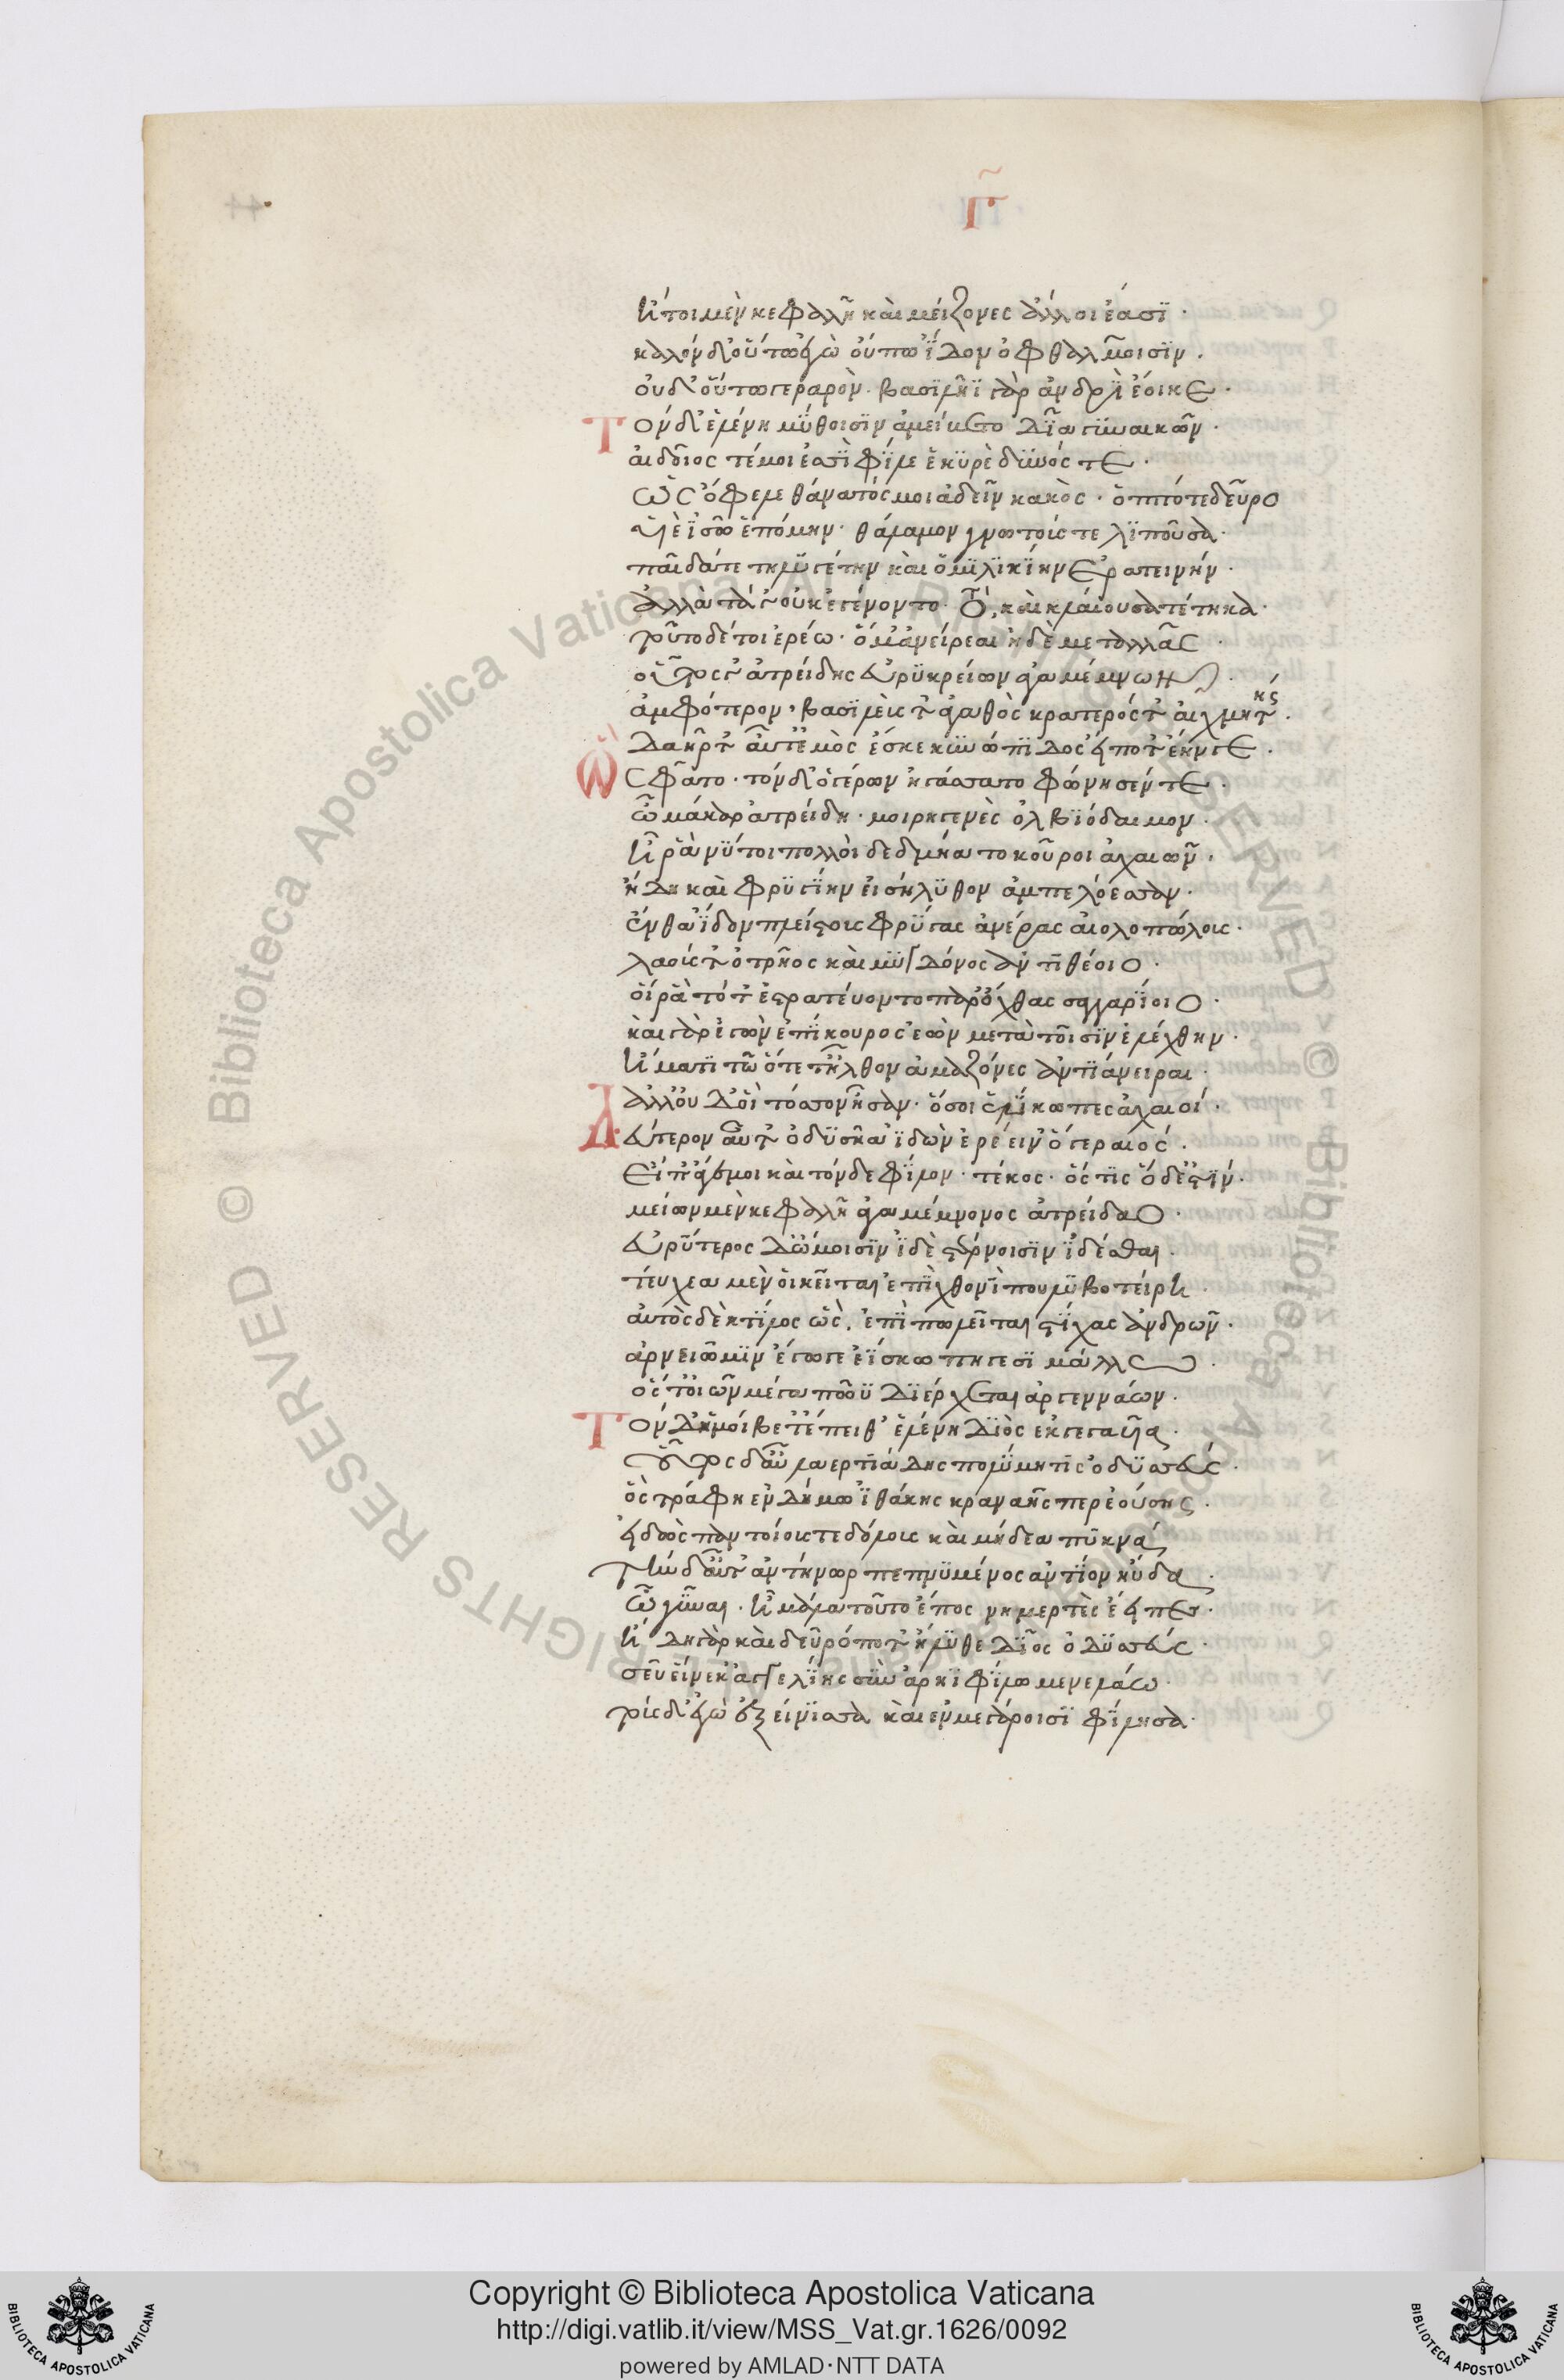 Γ
ἤτοι μὲν κεφαλῆ καὶ μείζονες ἄλλοι ἔασϊ.
καλόν δ' οὕτω ἐγὼ οὔπω ἴδον ὀφθαλμοῖσϊν.
οὐδ' οὕτω γεραρὸν. βασϊλῆϊ γὰρ ἀνδρὶ ἔοικε.
Τὸν δ' ἑλένη μύθοισϊν ἀμείβετο δῖα γυναικῶν.
αἰδοῖός τέ μοι ἐσσὶ φίλε ἑκυρὲ δεινός τε.
ὡς ὄφελε θάνατός μοι ἁδεῖν κακὸς. ὁππότε δεῦρο
υἱέϊ σῶ ἑπόμην. θάλαμον γνωτούς τε λιποῦσα.
παῖδά τε τηλυγέτην καὶ ὁμηλικίην ἐρατεινήν.
ἀλλὰ τά γ' οὐκ ἐγένοντο. τὸ, καὶ κλαίουσα τέτηκα.
τοῦτο δέ τοι ἐρέω. ὅ μ' ἀνείρεαι ἠδὲ μεταλλᾶς.
οὗτός γ' ἀτρείδης εὐρυκρείων ἀγαμέμνων.
ἀμφότερον, βασϊλεύς τ' ἀγαθὸς κρατερός τ' αἰχμητής.
δαὴρ αὖτ' ἐμὸς ἔσκε κυνώπιδος εἴποτ' ἔην γε.
Ὣς φάτο. τόν δ' ὁ γέρων ἠγάσσατο φώνησέν τε.
ὦ μάκαρ ἀτρείδη. μοιρηγενὲς ὀλβιόδαιμον.
ἦ ῥά νύ τοι πολλοὶ δεδμήατο κοῦροι ἀχαιῶν.
ἤδη καὶ φρυγίην εἰσήλυθον ἀμπελόεσσαν.
ἔνθα ἴδον πλείστους φρύγας ἀνέρας αἰολοπώλους.
λαούς τ' ὀτρῆος καὶ μυγδόνος ἀντιθέοιο.
οἵ ῥα τότ' ἐστρατεύοντο παρ' ὄχθας σαγγαρίοιο.
καὶ γὰρ ἐγὼν ἐπίκουρος ἐὼν μετὰ τοῖσϊν ἐλέχθην.
ἤματι τῶ ὅτε τ' ἦλθον ἀμαζόνες ἀντιάνειραι.
ἀλλ' οὐδ' οἳ τόσσον ἦσαν. ὅσοι ἑλίκωπες ἀχαιοί.
Δεύτερον αὖτ' ὀδυσῆα ἰδὼν ἐρέειν' ὁ γεραιός.
εἴπ' ἄγε μοι καὶ τόνδε φίλον τέκος. ὅς τις ὅδ' ἐστίν.
μείων μὲν κεφαλῆ ἀγαμέμνονος ἀτρείδαο.
εὐρύτερος δ' ὤμοισϊν ἰδὲ στέρνοισϊν ἰδέσθαι.
τεύχεα μὲν οἱ κεῖται ἐπὶ χθονὶ πουλυβοτείρη.
αὐτὸς δὲ κτίλος ὣς, ἐπιπωλεῖται στίχας ἀνδρῶν.
ἀρνειῶ μιν ἔγωγε ἐΐσκω πηγεσϊμάλλω.
ὅς τ' οἰῶν μέγα πῶϋ διέρχεται ἀργεννάων.
Τὸν δ' ἠμείβετ' ἔπειθ' ἑλένη διὸς ἐκγεγαυῖα.
οὗτος δ' αὖ λαερτιάδης πολύμητις ὀδυσσεύς.
ὃς τράφη ἐν δήμω ἰθάκης κραναῆς περ ἐούσης.
εἰδὼς παντοίους τε δόλους καὶ μήδεα πυκνά.
Τὴν δ' αὖτ' ἀντήνωρ πεπνυμένος ἀντίον ηὔδα.
ὦ γύναι. ἦ μάλα τοῦτο ἔπος νημερτὲς ἔειπες.
ἤδη γὰρ καὶ δεῦρό ποτ' ἤλυθε δῖος ὀδυσσεύς.
σεῦ εἵνεκ' ἀγγελίης σὺν ἀρηϊφίλω μενελάω.
τοὺς δ' ἐγὼ ἐξείνισσα καὶ ἐν μεγάροισϊ φίλησα.
Copyright © Biblioteca Apostolica Vaticana
http://digi.vatlib.it/view/MSS_Vat.gr.1626/0092
powered by AMLAD·NTT DATA